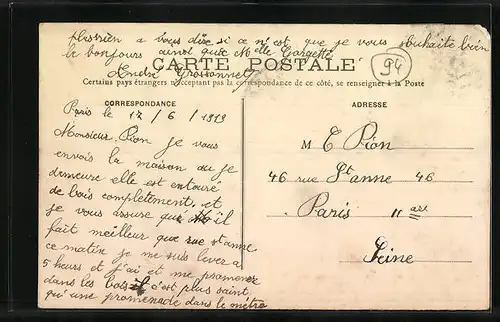 plus rien a vous dire si ce n'est que je vous souhaite bien
le bonjours ainsi que Melle Georgette
André Groisonnet
CARTE POSTALE
94
Certains pays étrangers n'acceptant pas la correspondance de ce côté, se renseigner à la Poste
CORRESPONDANCE
ADRESSE
Paris le 17 / 6 / 1919
Monsieur Pion je vous
envois la maison ou je
demeure elle est entouré
de bois complètement, et
je vous assure qu'il
fait meilleur que rue St anne
ce matin je me suis lever a
5 heurs et j'ai et me promener
dans les bois c'est plus saint
qu'une promenade dans le métro
M E Pion
46 rue St anne 46
Paris 11 art
Seine